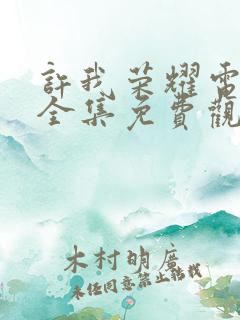 許我荣耀電
全集免費觀
木村明廣
未经同意禁止转载